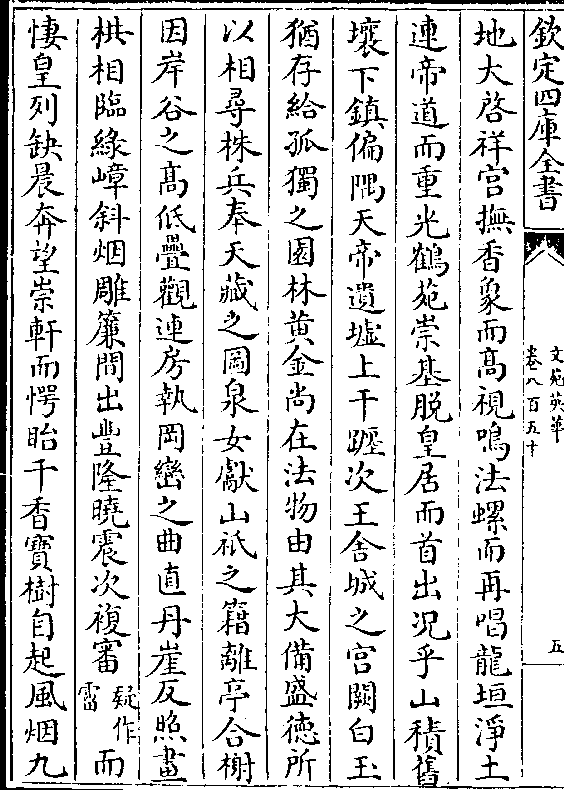 欽定四庫全書
文苑英華
卷八百五十
五
地大啓祥宫撫香象而髙視鳴法螺而再唱龍垣淨土
連帝道而重光鶴苑崇基脱皇居而首出况乎山積舊
壤下鎮偏隅天帝遺墟上干躔次王舍城之宫闕白玉
猶存給孤獨之園林黄金尚在法物由其大備盛徳所
以相尋株兵奉天藏之圖泉女獻山祇之籍離亭合榭
因岸谷之髙低疊觀連房執岡巒之曲直丹崖反照畫
栱相臨緑嶂斜烟雕簾間出豐隆曉震次複審疑作霤而
悽皇列缺晨奔望崇軒而愕眙千香寶樹自起風烟九